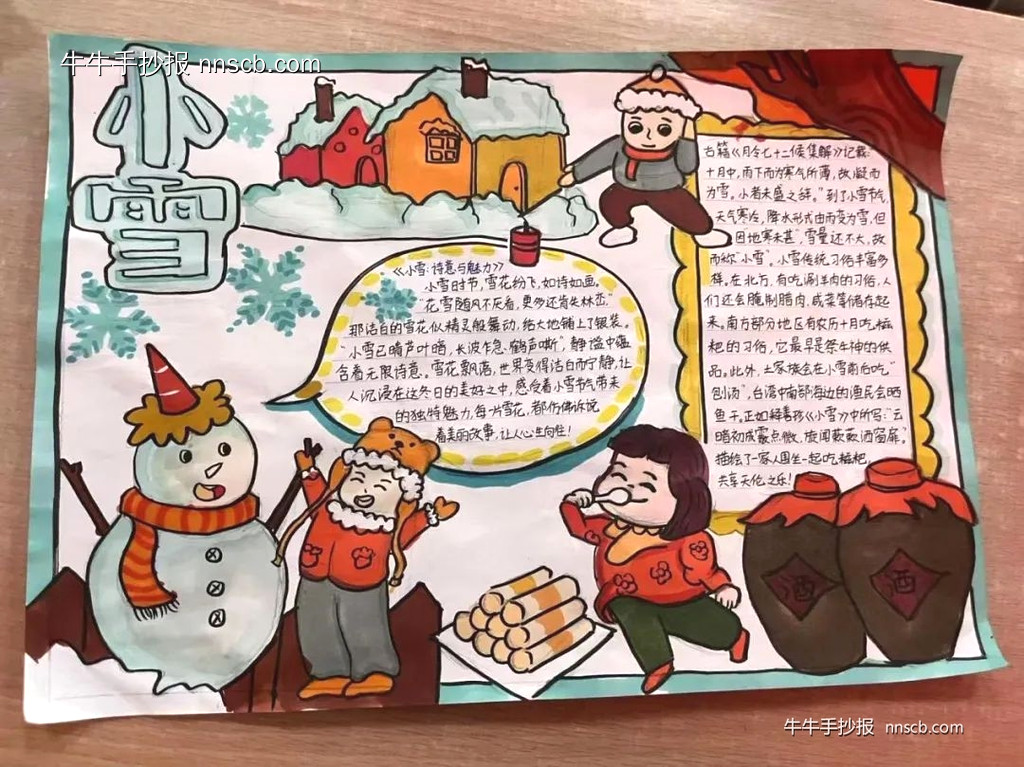 牛牛手抄报 nnscb.com
小
雪
《小雪:诗意与魅力》
小雪时节,雪花纷飞,如诗如画。
"花雪随风不厌看,更多还肯失林峦"
那洁白的雪花似精灵般舞动,给大地铺上了银装。
"小雪已晴芦叶暗,长波乍急鹤声嘶",静谧中蕴
含着无限诗意。雪花飘落,世界变得洁白而宁静,让
人沉浸在这冬日的美好之中,感受着小雪节气带来
的独特魅力,每片雪花,都仿佛诉说
着美丽故事,让人心生向往!
古籍《月令七十二候集解》记载:
十月中,雨下而为寒气所薄,故凝而
为雪。小者未盛之辞。"到了小雪节气,
天气寒冷,降水形式由雨变为雪,但
因地寒未甚,雪量还不大,故
而称"小雪"。小雪传统习俗丰富多
样。在北方,有吃涮羊肉的习俗,人
们还会腌制腊肉,咸菜等储存起
来。南方部分地区有农历十月吃糍
粑的习俗,它最早是祭牛神的供
品。此外,土家族会在小雪前后吃"
刨汤",台湾中南部海边的渔民会晒
鱼干。正如《小雪》中所写:"云
暗初成霰点微,旋闻蔌蔌洒窗扉。"
描绘了一家人围坐一起吃糍粑,
共享天伦之乐!
酒
酒
牛牛手抄报 nnscb.com